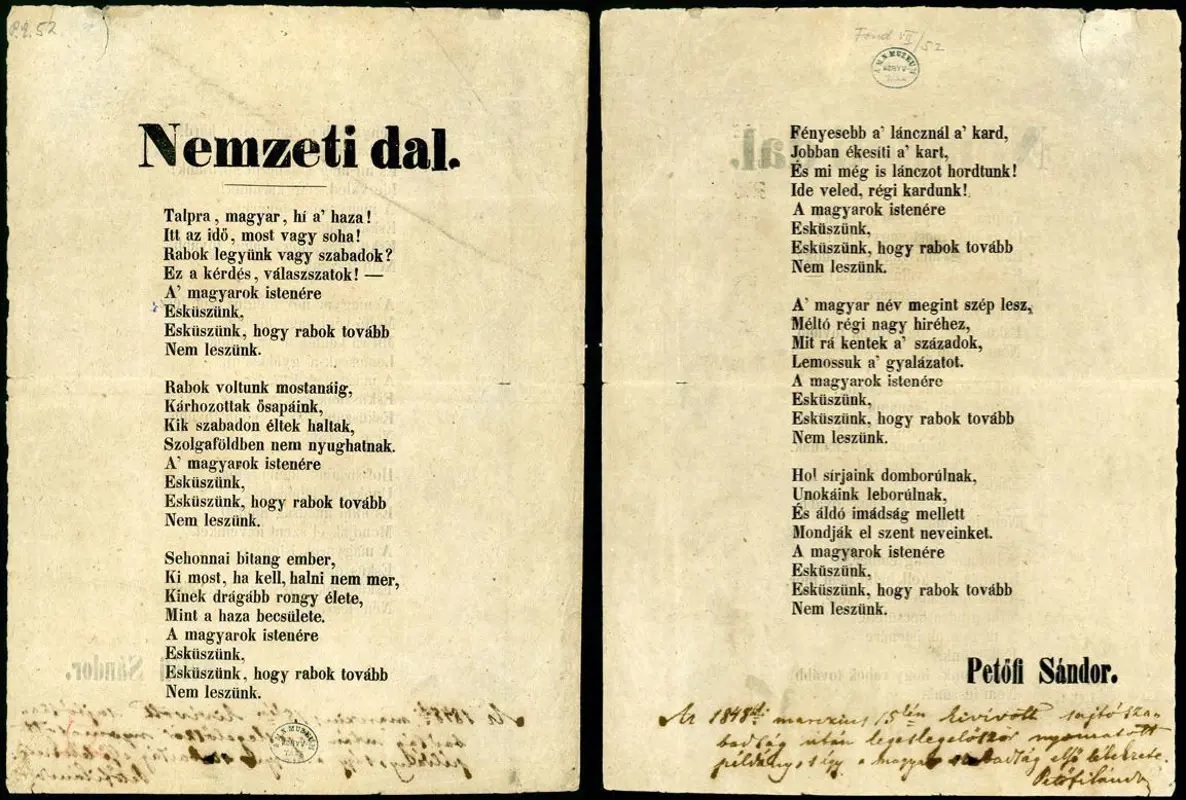 P.2.52
Nemzeti dal.
Talpra, magyar, hí a’ haza!
Itt az idő, most vagy soha!
Rabok legyünk vagy szabadok?
Ez a kérdés, válaszszatok! —
A’ magyarok istenére
Esküszünk,
Esküszünk, hogy rabok tovább
Nem leszünk.
Rabok voltunk mostanáig,
Kárhozottak ősapáink,
Kik szabadon éltek haltak,
Szolgaföldben nem nyughatnak.
A’ magyarok istenére
Esküszünk,
Esküszünk, hogy rabok tovább
Nem leszünk.
Sehonnai bitang ember,
Ki most, ha kell, halni nem mer,
Kinek drágább rongy élete,
Mint a haza becsülete.
A magyarok istenére
Esküszünk,
Esküszünk, hogy rabok tovább
Nem leszünk.
Fond VII/52
M. N. MUZEUM
Fényesebb a’ láncznál a’ kard,
Jobban ékesíti a’ kart,
És mi még is lánczot hordtunk!
Ide veled, régi kardunk!
A magyarok istenére
Esküszünk,
Esküszünk, hogy rabok tovább
Nem leszünk.
A’ magyar név megint szép lesz,
Méltó régi nagy hiréhez,
Mit rá kentek a’ századok,
Lemossuk a’ gyalázatot.
A magyarok istenére
Esküszünk,
Esküszünk, hogy rabok tovább
Nem leszünk.
Hol sírjaink domborúlnak,
Unokáink leborúlnak,
És áldó imádság mellett
Mondják el szent neveinket.
A magyarok istenére
Esküszünk,
Esküszünk, hogy rabok tovább
Nem leszünk.
Petőfi Sándor.
Az 1848diki marczius 15kén kivivott sajtósza-
badság után legeslegelőször nyomatott
példány, s így a magyar szabadság első lélekzete.
Petőfi Sándor